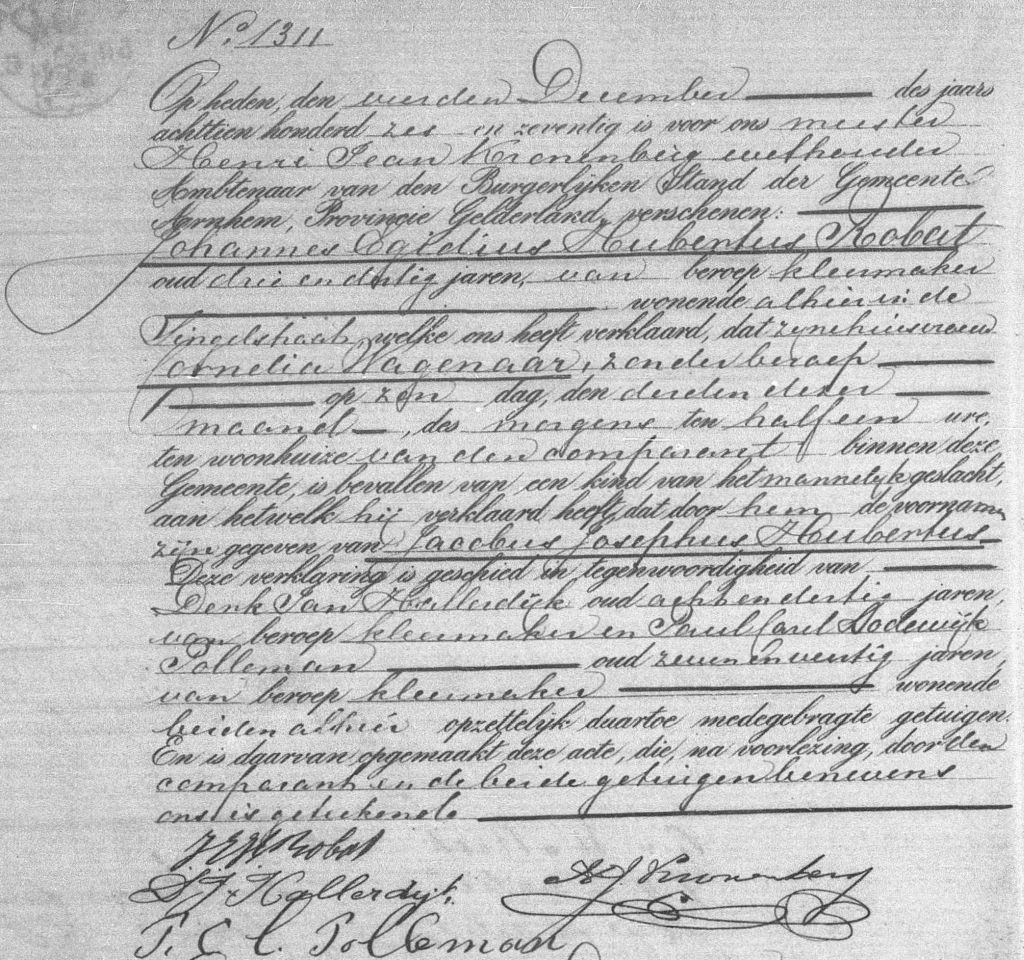 No. 1311
Op heden, den vierden December des jaars
achttien honderd zes en zeventig is voor ons meester
Henri Jean Kronenberg wethouder
Ambtenaar van den Burgerlijken Stand der Gemeente
Arnhem, Provincie Gelderland, verschenen:
Johannes Egidius Hubertus Robert
oud drie en dertig jaren, van beroep kleermaker
wonende alhier in de
Singelstraat, welke ons heeft verklaard, dat zijne huisvrouw
Cornelia Wagenaar, zonder beroep
op zon dag, den derden dezer
maand, des morgens ten half een ure,
ten woonhuize van den comparant binnen deze
Gemeente, is bevallen van een kind van het mannelijk geslacht,
aan hetwelk hij verklaard heeft, dat door hem de voornamen
zijn gegeven van Jacobus Josephus Hubertus
Deze verklaring is geschied in tegenwoordigheid van
Derk Jan Hallerdijk oud acht en dertig jaren,
van beroep kleermaker en Paul Carel Lodewijk
Tolleman oud zeven en veertig jaren,
van beroep kleermaker wonende
beiden alhier opzettelijk daartoe medegebragte getuigen.
En is daarvan opgemaakt deze acte, die, na voorlezing, door den
comparant en de beide getuigen benevens
ons is geteekend
J E H Robert
D J Hallerdijk.
H J Kronenberg
P. C. L. Tolleman